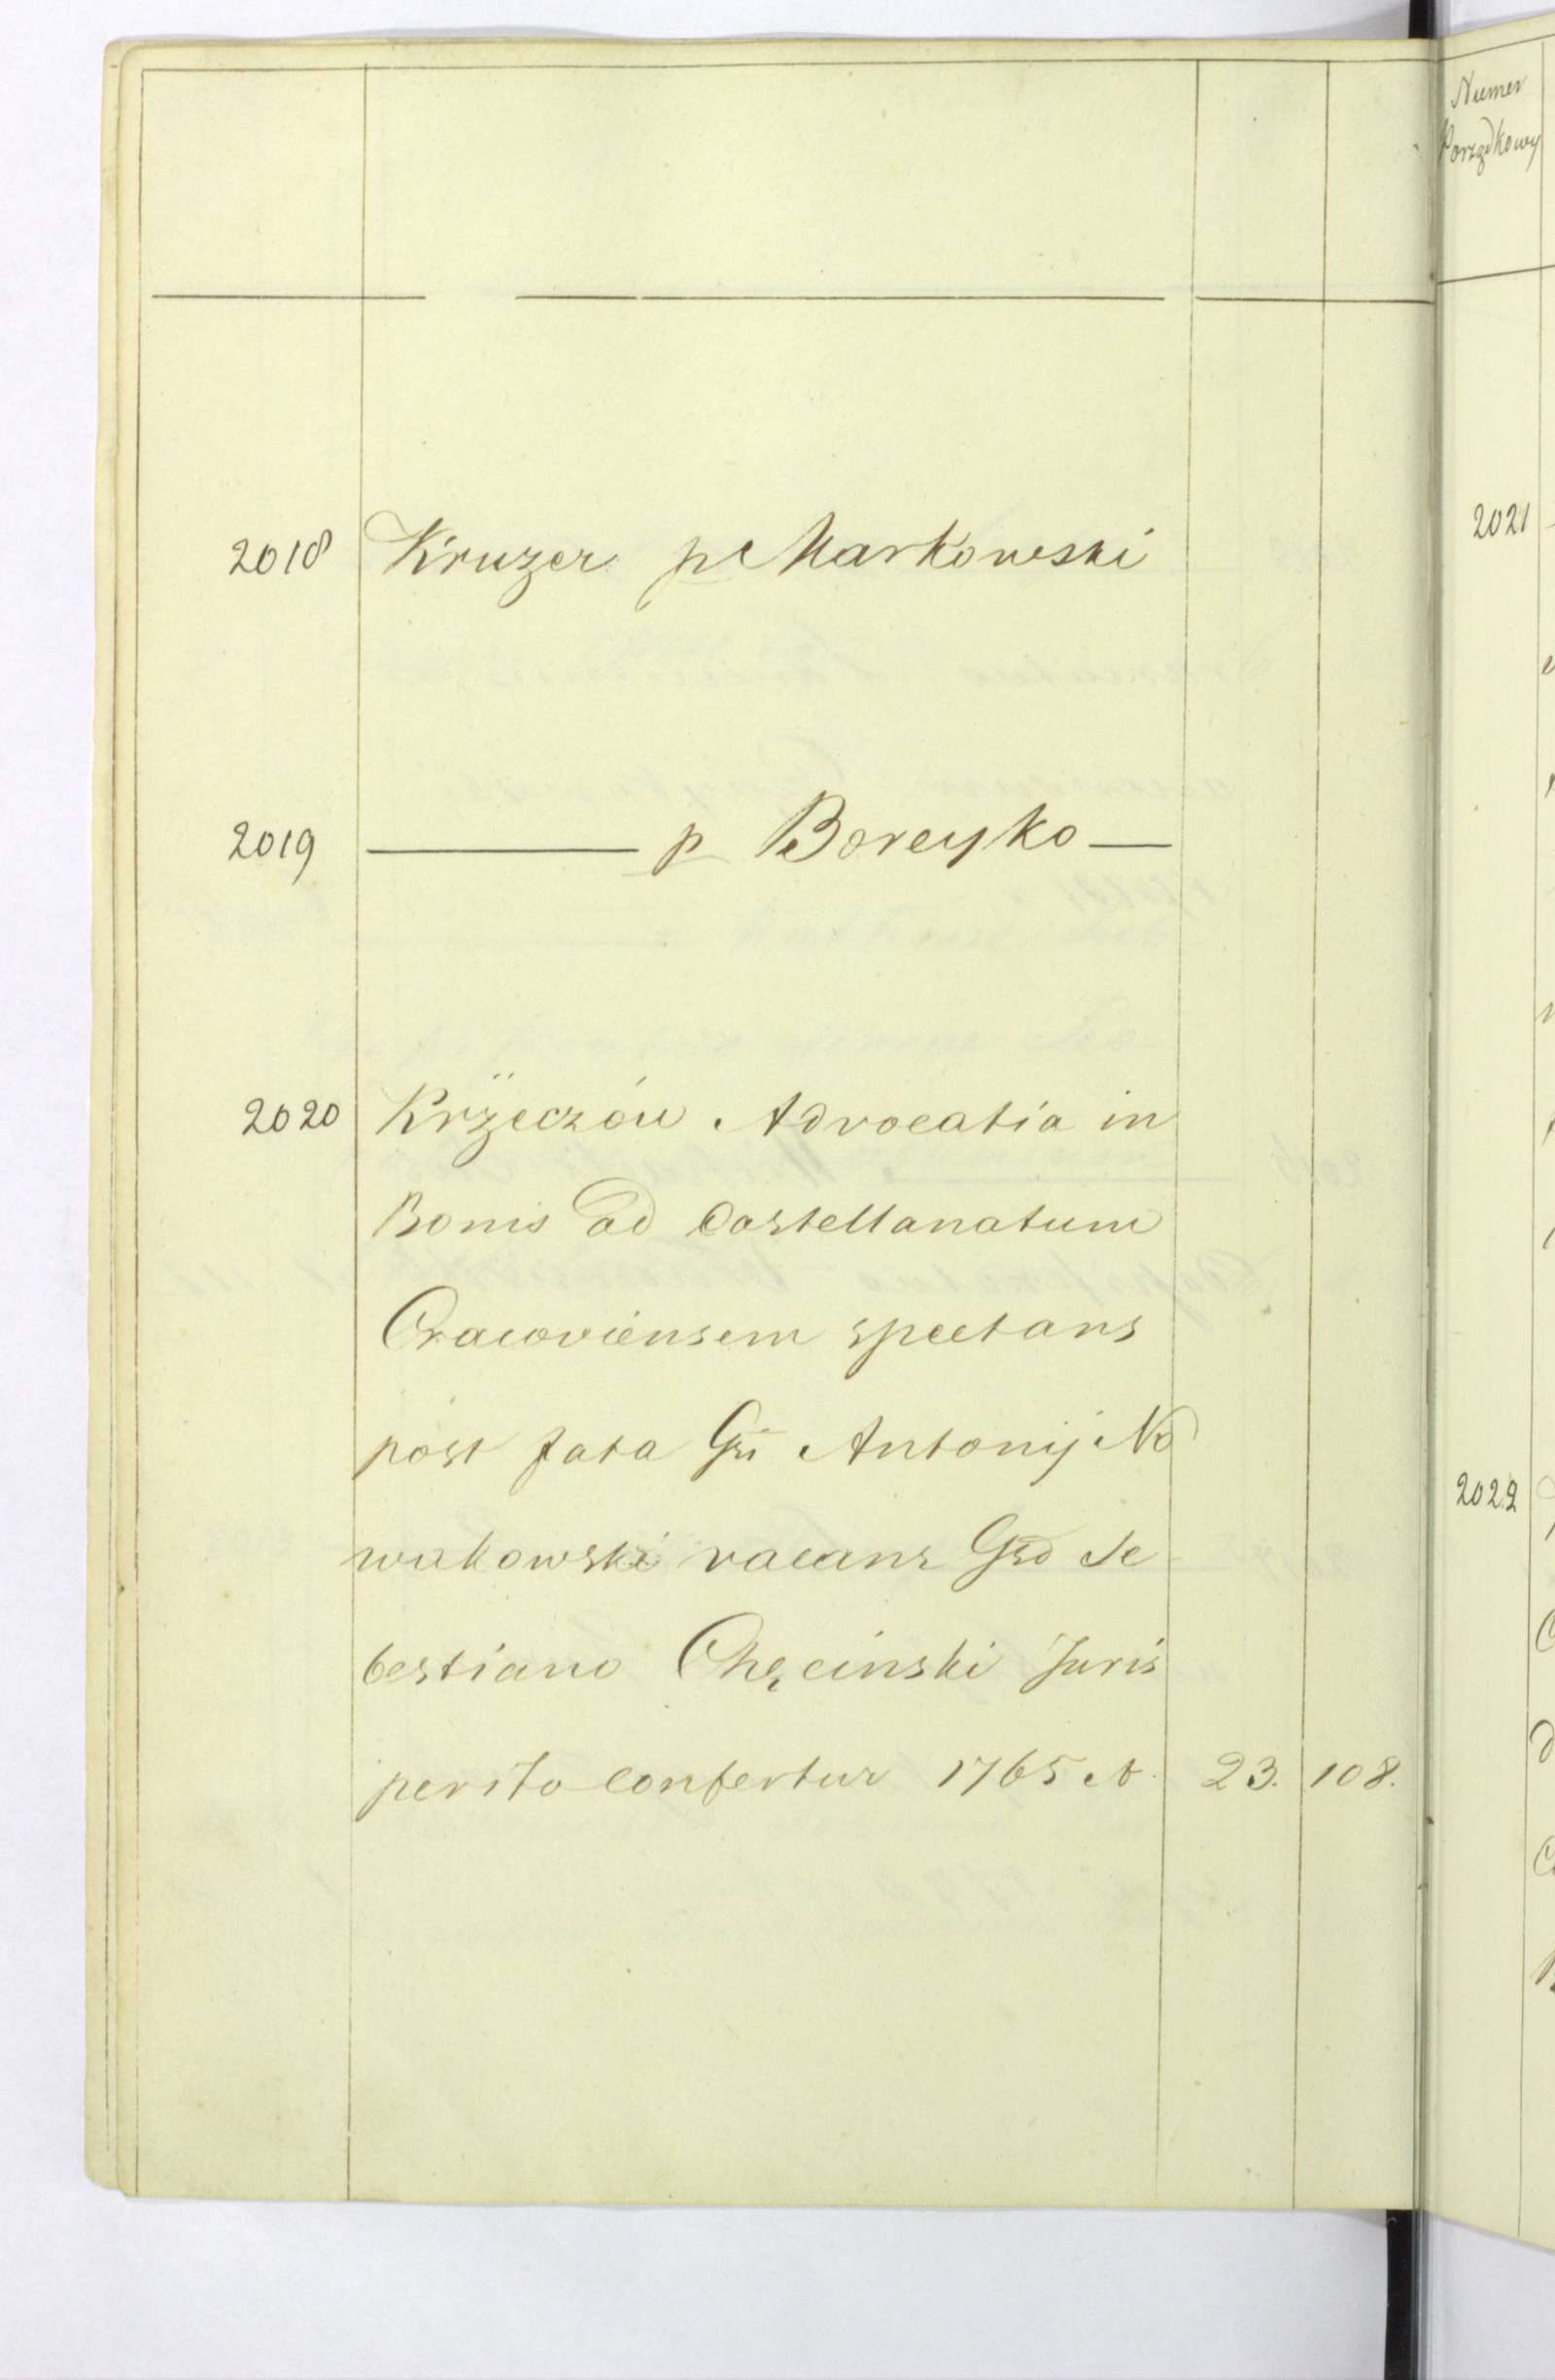 2018 Kruzer p Markowski
2019 — p Boreyko —
2020 Krzeczów Advocatia in
Bonis ad Castellanatum
Cracoviensem spectans
post fata Gsi Antonij No
wakowski vacans Gso Se
bestiano Chęcinski Juris
perito confertur 1765 A. 23. 108.
Numer
Porządkowy
2021
2022